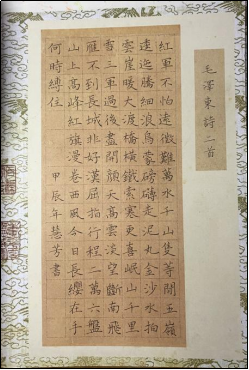 毛澤東詩二首
紅軍不怕遠徵難萬水千山隻等閑五嶺
逶迤騰細浪烏蒙磅礴走泥丸金沙水拍
雲崖暖大渡橋橫鐵索寒更喜岷山千里
雪三軍過後盡開顏天高雲淡望斷南飛
雁不到長城非好漢屈指行程二萬六盤
山上高峰紅旗漫卷西風今日長纓在手
何時縛住 甲辰年慧芳書